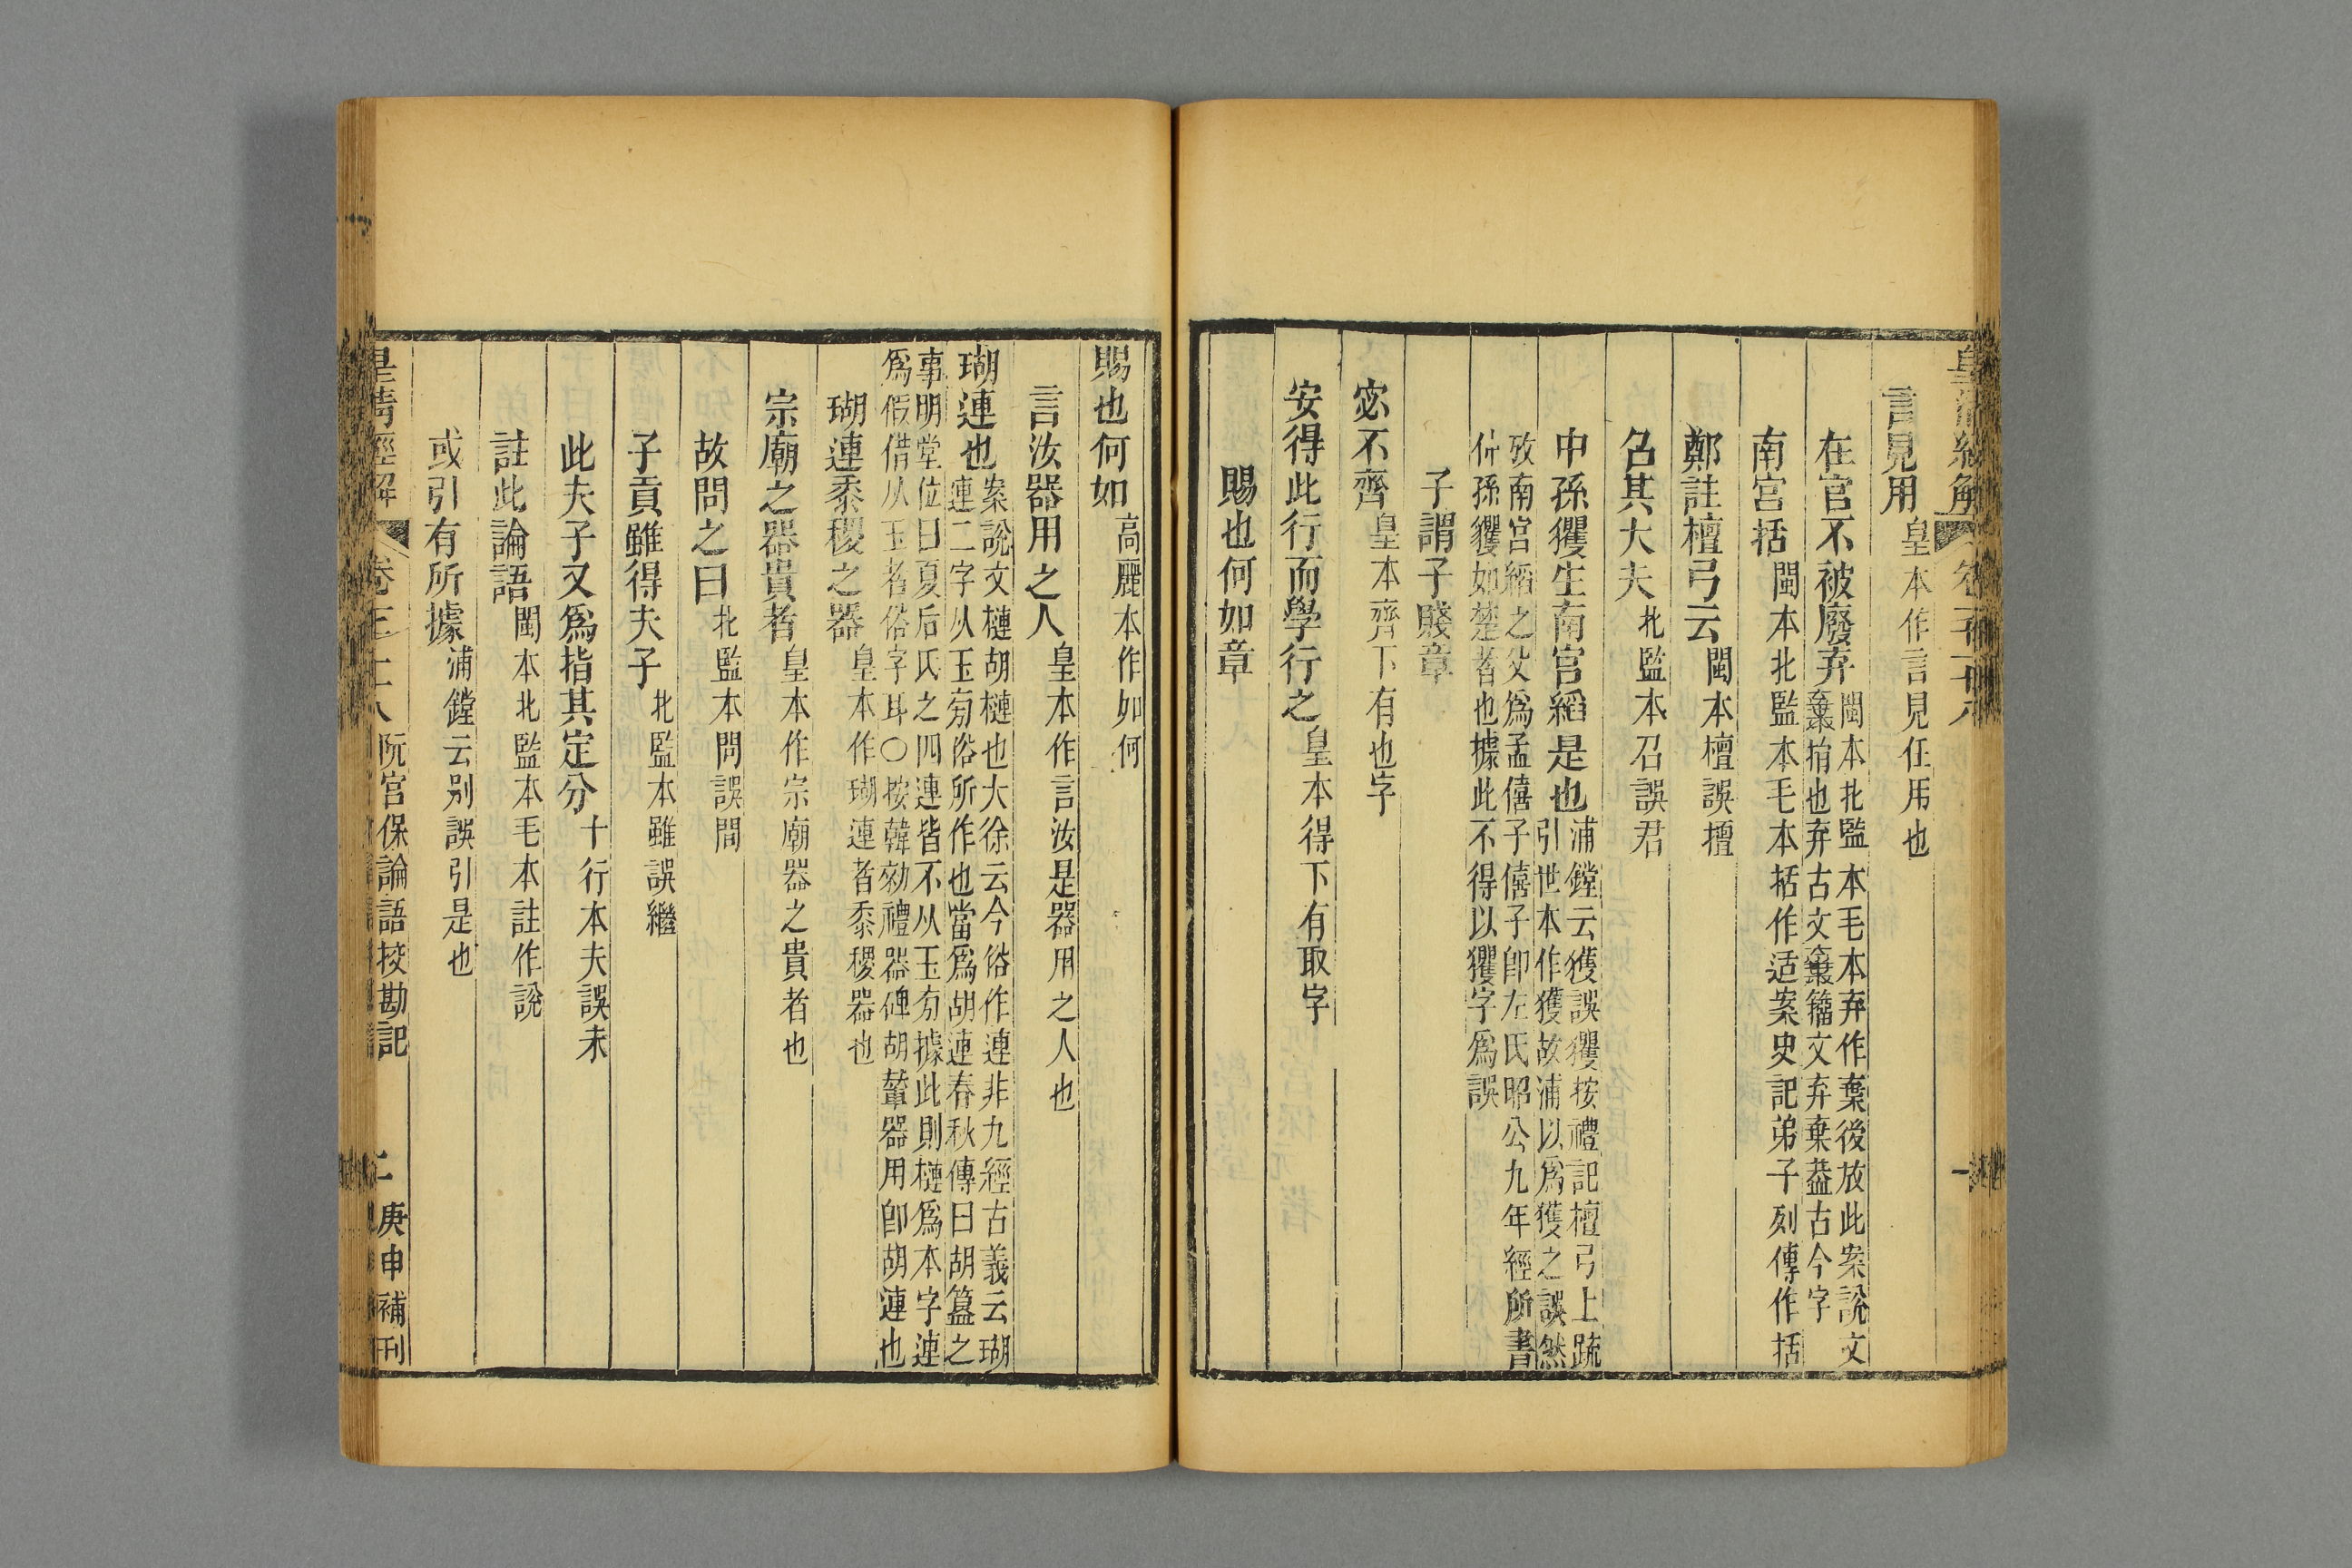 言見用皇本作言見任用也
在官不被廢弃閩本北監本毛本弃作棄後放此案說文
棄捐也弃古文棄籀文弃棄葢古今字
南宫括閩本北監本毛本括作适案史記弟子列傳作括
鄭註檀弓云閩本檀誤擅
名其大夫北監本召誤君
中孫玃生南宫縚是也浦鏜云獲誤玃按禮記檀弓上疏
引世本作獲故浦以爲獲之誤然
攷南宫縚之父爲孟僖子僖子卽左氏昭公九年經所書
仲孫玃如楚者也據此不得以玃字爲誤
子謂子賤章
宓不齊皇本齊下有也字
安得此行而學行之皇本得下有取字
賜也何如章
賜也何如高麗本作如何
言汝器用之人皇本作言汝是器用之人也
瑚連也案說文槤胡槤也大徐云今俗作連非九經古義云瑚
連二字从玉旁俗所作也當爲胡連春秋傳曰胡簋之
事明堂位曰夏后氏之四連皆不从玉旁據此則槤爲本字連
爲假借从玉者俗字耳〇按韓勑禮器碑胡輦器用卽胡連也
瑚連黍稷之器皇本作瑚連者黍稷器也
宗廟之器貴者皇本作宗廟器之貴者也
故問之曰北監本問誤間
子貢雖得夫子北監本雖誤繼
此夫子又爲指其定分十行本夫誤未
註此論語閩本北監本毛本註作說
或引有所據浦鏜云别誤引是也
皇清經解 卷 阮宫保論語挍勘記 二 庚申補刊